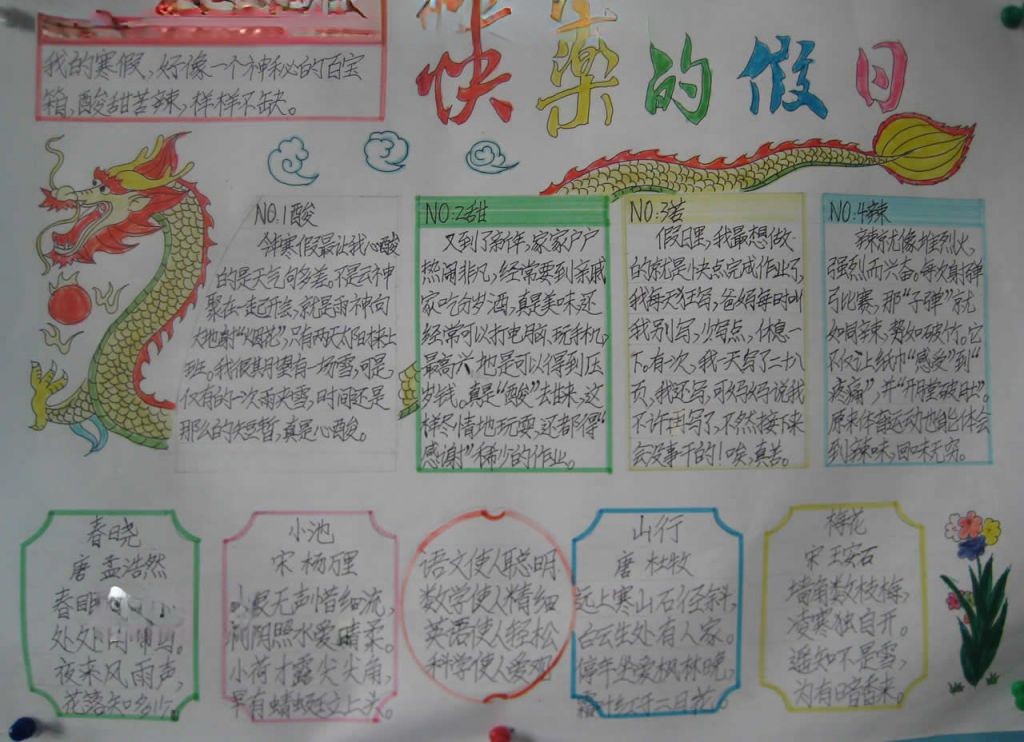 快乐的假日
我的寒假,好像一个神秘的百宝
箱,酸甜苦辣,样样不缺。
NO.1酸
今年寒假最让我心酸
的是天气问多差。不是云神
聚在一起开会,就是雨神向
大地射“烟花”,只有两天太阳棒上
班。我很期望有一场雪,可是,
仅有的一次雨夹雪,时间还是
那么的短暂,真是心酸。
NO:2甜
又到了新年,家家户户
热闹非凡,经常要到亲戚
家吃分岁酒,真是美味,还
经常可以打电脑,玩手机,
最高兴地是可以得到压
岁钱。真是“酸”去甜来,这
样尽情地玩耍,还都得“
感谢”稀少的作业。
NO:3苦
假日里,我最想做
的就是快点完成作业了,
我每天狂写,爸妈每时叫
我别写,少写点,休息一
下。有次,我一天写了二十八
页,我还写,可妈妈说我
不许再写了,不然接下来
会没事干的!唉,真苦。
NO:4辣
辣就像堆烈火,
强烈而兴奋。每次射弹
弓比赛,那“子弹”就
如同辣,势如破竹。它
不仅让纸巾“感受”到“
疼痛”,并“开膛破肚”。
原来体育运动也能体会
到辣味,回味无穷。
春晓
唐 孟浩然
春眠
处处闻啼鸟。
夜来风雨声,
花落知多少。
小池
宋 杨万里
眼无声惜细流,
树阴照水爱晴柔。
小荷才露尖尖角,
早有蜻蜓立上头。
语文使人聪明
数学使人精细
英语使人轻松
科学使人爱观
山行
唐 杜牧
远上寒山石径斜,
白云生处有人家。
停车坐爱枫林晚,
霜叶红于二月花。
梅花
宋 王安石
墙角数枝梅,
凌寒独自开。
遥知不是雪,
为有暗香来。